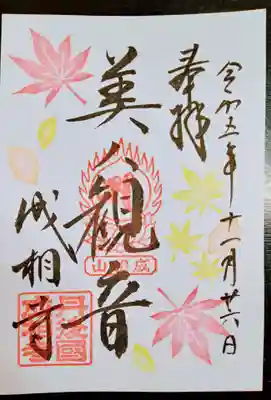 令和五年十一月廿六日
奉拝
美人観音
成相山
成相寺